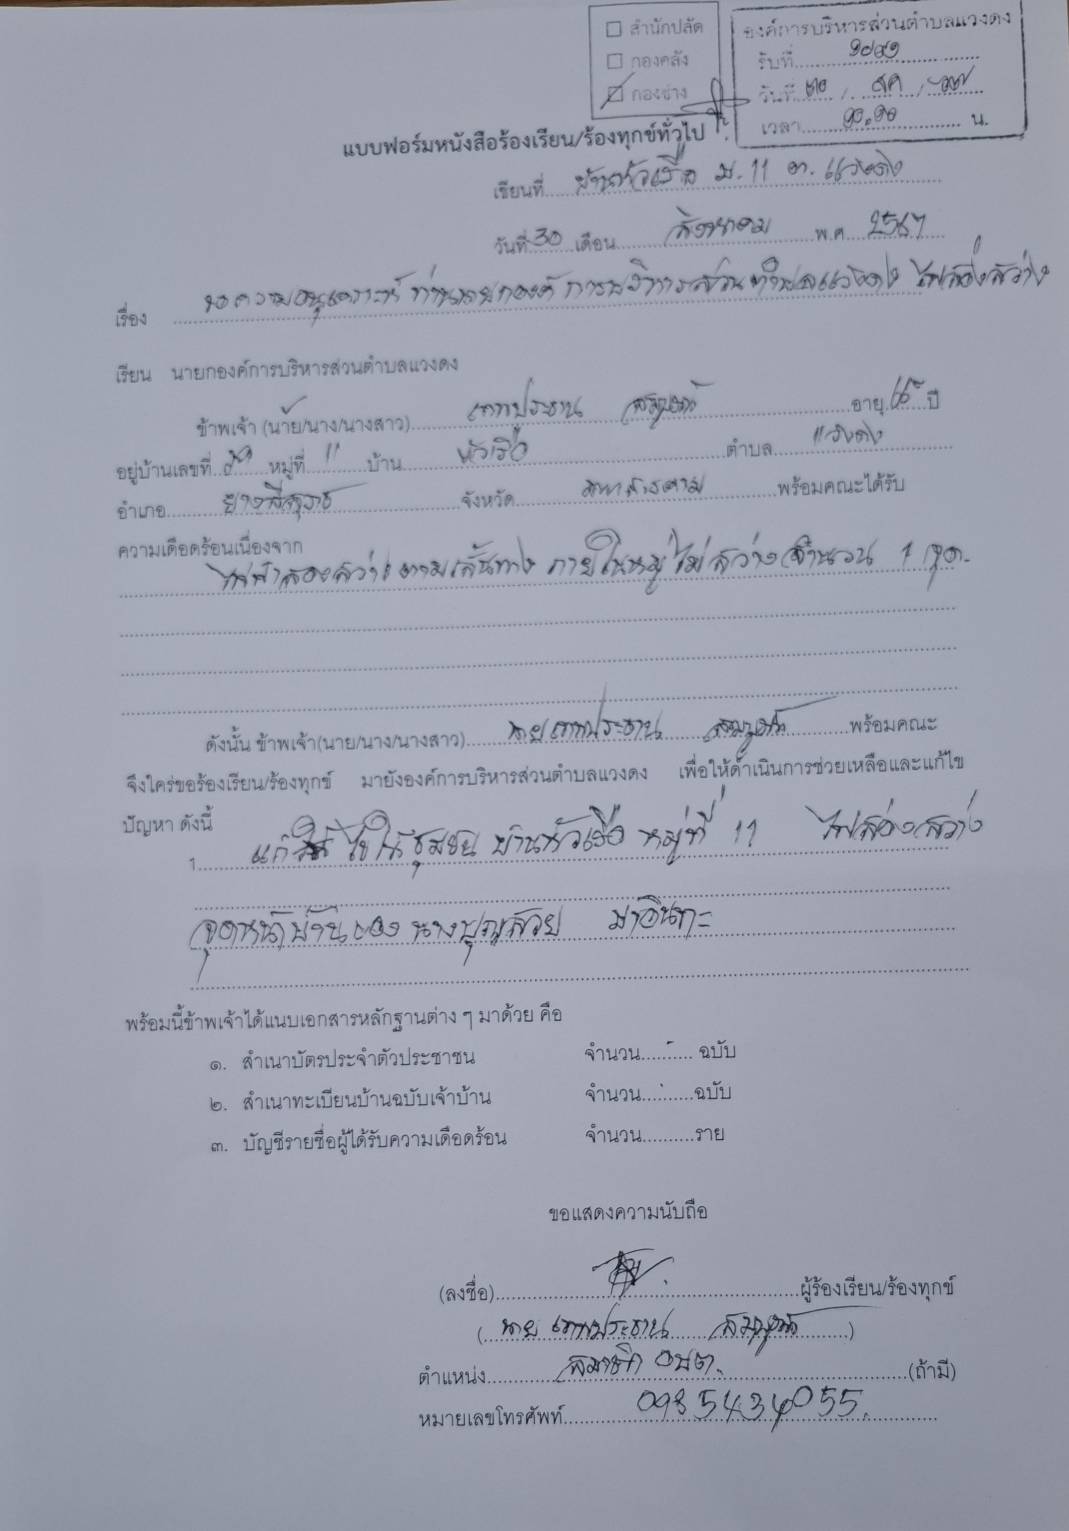 สำนักปลัด
กองคลัง
กองช่าง
องค์การบริหารส่วนตำบลแวงดง
รับที่
วันที่ ๓๐ / สค /
เวลา น.
แบบฟอร์มหนังสือร้องเรียน/ร้องทุกข์ทั่วไป
เขียนที่ บ้านหัวเรือ ม.11 ต.แวงดง
วันที่ 30 เดือน สิงหาคม พ.ศ. 2567
เรื่อง ขอความอนุเคราะห์ ท่านนายกองค์การบริหารส่วนตำบลแวงดง ไฟส่องสว่าง
เรียน นายกองค์การบริหารส่วนตำบลแวงดง
ข้าพเจ้า (นาย/นาง/นางสาว) เทพประธาน อายุ ปี
อยู่บ้านเลขที่ หมู่ที่ 11 บ้าน หัวเรือ ตำบล แวงดง
อำเภอ ยางสีสุราช จังหวัด มหาสารคาม พร้อมคณะได้รับ
ความเดือดร้อนเนื่องจาก
ไฟฟ้าส่องสว่าง ตามเส้นทาง ภายในหมู่ ไม่สว่าง จำนวน 1 จุด.
ดังนั้น ข้าพเจ้า(นาย/นาง/นางสาว) นายเทพประธาน พร้อมคณะ
จึงใคร่ขอร้องเรียน/ร้องทุกข์ มายังองค์การบริหารส่วนตำบลแวงดง เพื่อให้ดำเนินการช่วยเหลือและแก้ไข
ปัญหา ดังนี้
1. แก้ไขให้ชุมชน บ้านหัวเรือ หมู่ที่ 11 ไฟส่องสว่าง
จุดหน้าบ้านของ นางบุญสวย มาอินทะ
พร้อมนี้ข้าพเจ้าได้แนบเอกสารหลักฐานต่าง ๆ มาด้วย คือ
๑. สำเนาบัตรประจำตัวประชาชน จำนวน ฉบับ
๒. สำเนาทะเบียนบ้านฉบับเจ้าบ้าน จำนวน ฉบับ
๓. บัญชีรายชื่อผู้ได้รับความเดือดร้อน จำนวน ราย
ขอแสดงความนับถือ
(ลงชื่อ) ผู้ร้องเรียน/ร้องทุกข์
(นาย เทพประธาน )
ตำแหน่ง สมาชิก อบต. (ถ้ามี)
หมายเลขโทรศัพท์ 0985434055.